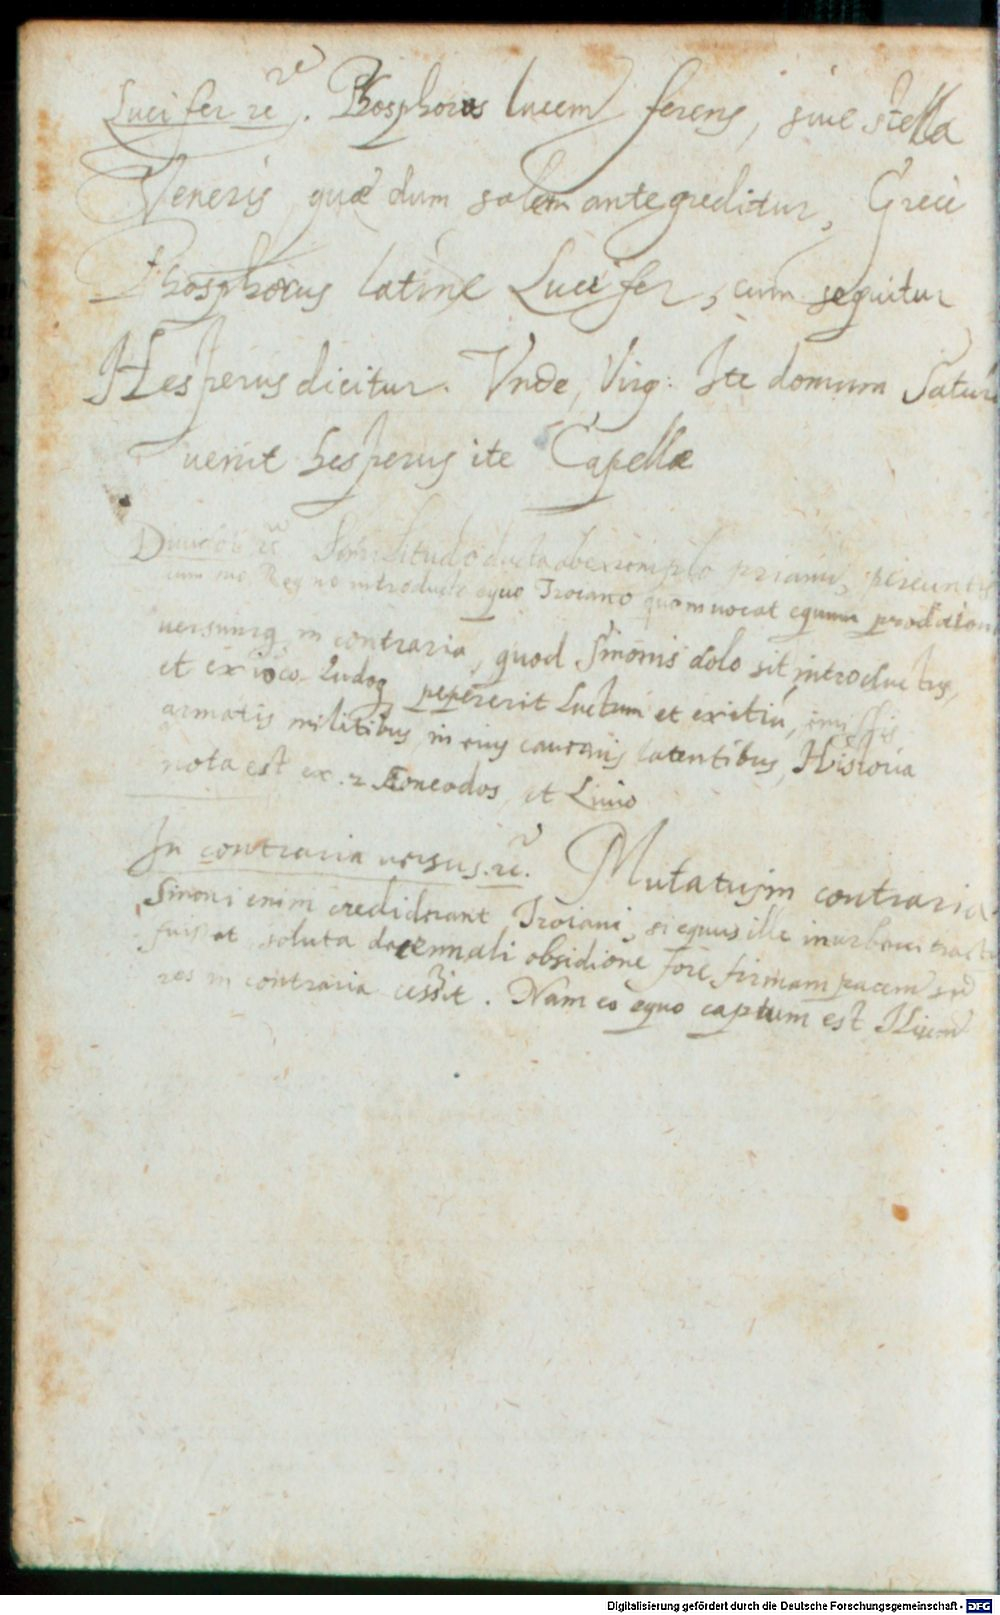 Lucifer &c. Phosphorus lucem ferens, siue stella
Veneris quæ dum solem antegreditur, Grece
Phosphorus latine Lucifer, cum sequitur
Hesperus dicitur. Vnde, Virg: Ite domum Satur
uenit hesperus ite Capellæ
&c Similitudo ducta ab exemplo priami, pereuntis
cum suo Regno introducto equo Troiano quem uocat equum
uersumq in contraria, quod Sinonis dolo sit introductus,
et ex ioco Ludoq pepererit Luctum et exitiũ, emissis
armatis militibus, in eius cauernis latentibus, Historia
nota est ex .2 Æneados, et Liuio
In contraria uersus. &c. Mutatusin contraria
Sinoni enim crediderant Troiani, si equus ille in urbem
fuisset soluta decennali obsidione fore firmam pacem sed
res in contraria cessit. Nam eo equo captum est Ilium
Digitalisierung gefördert durch die Deutsche Forschungsgemeinschaft - DFG